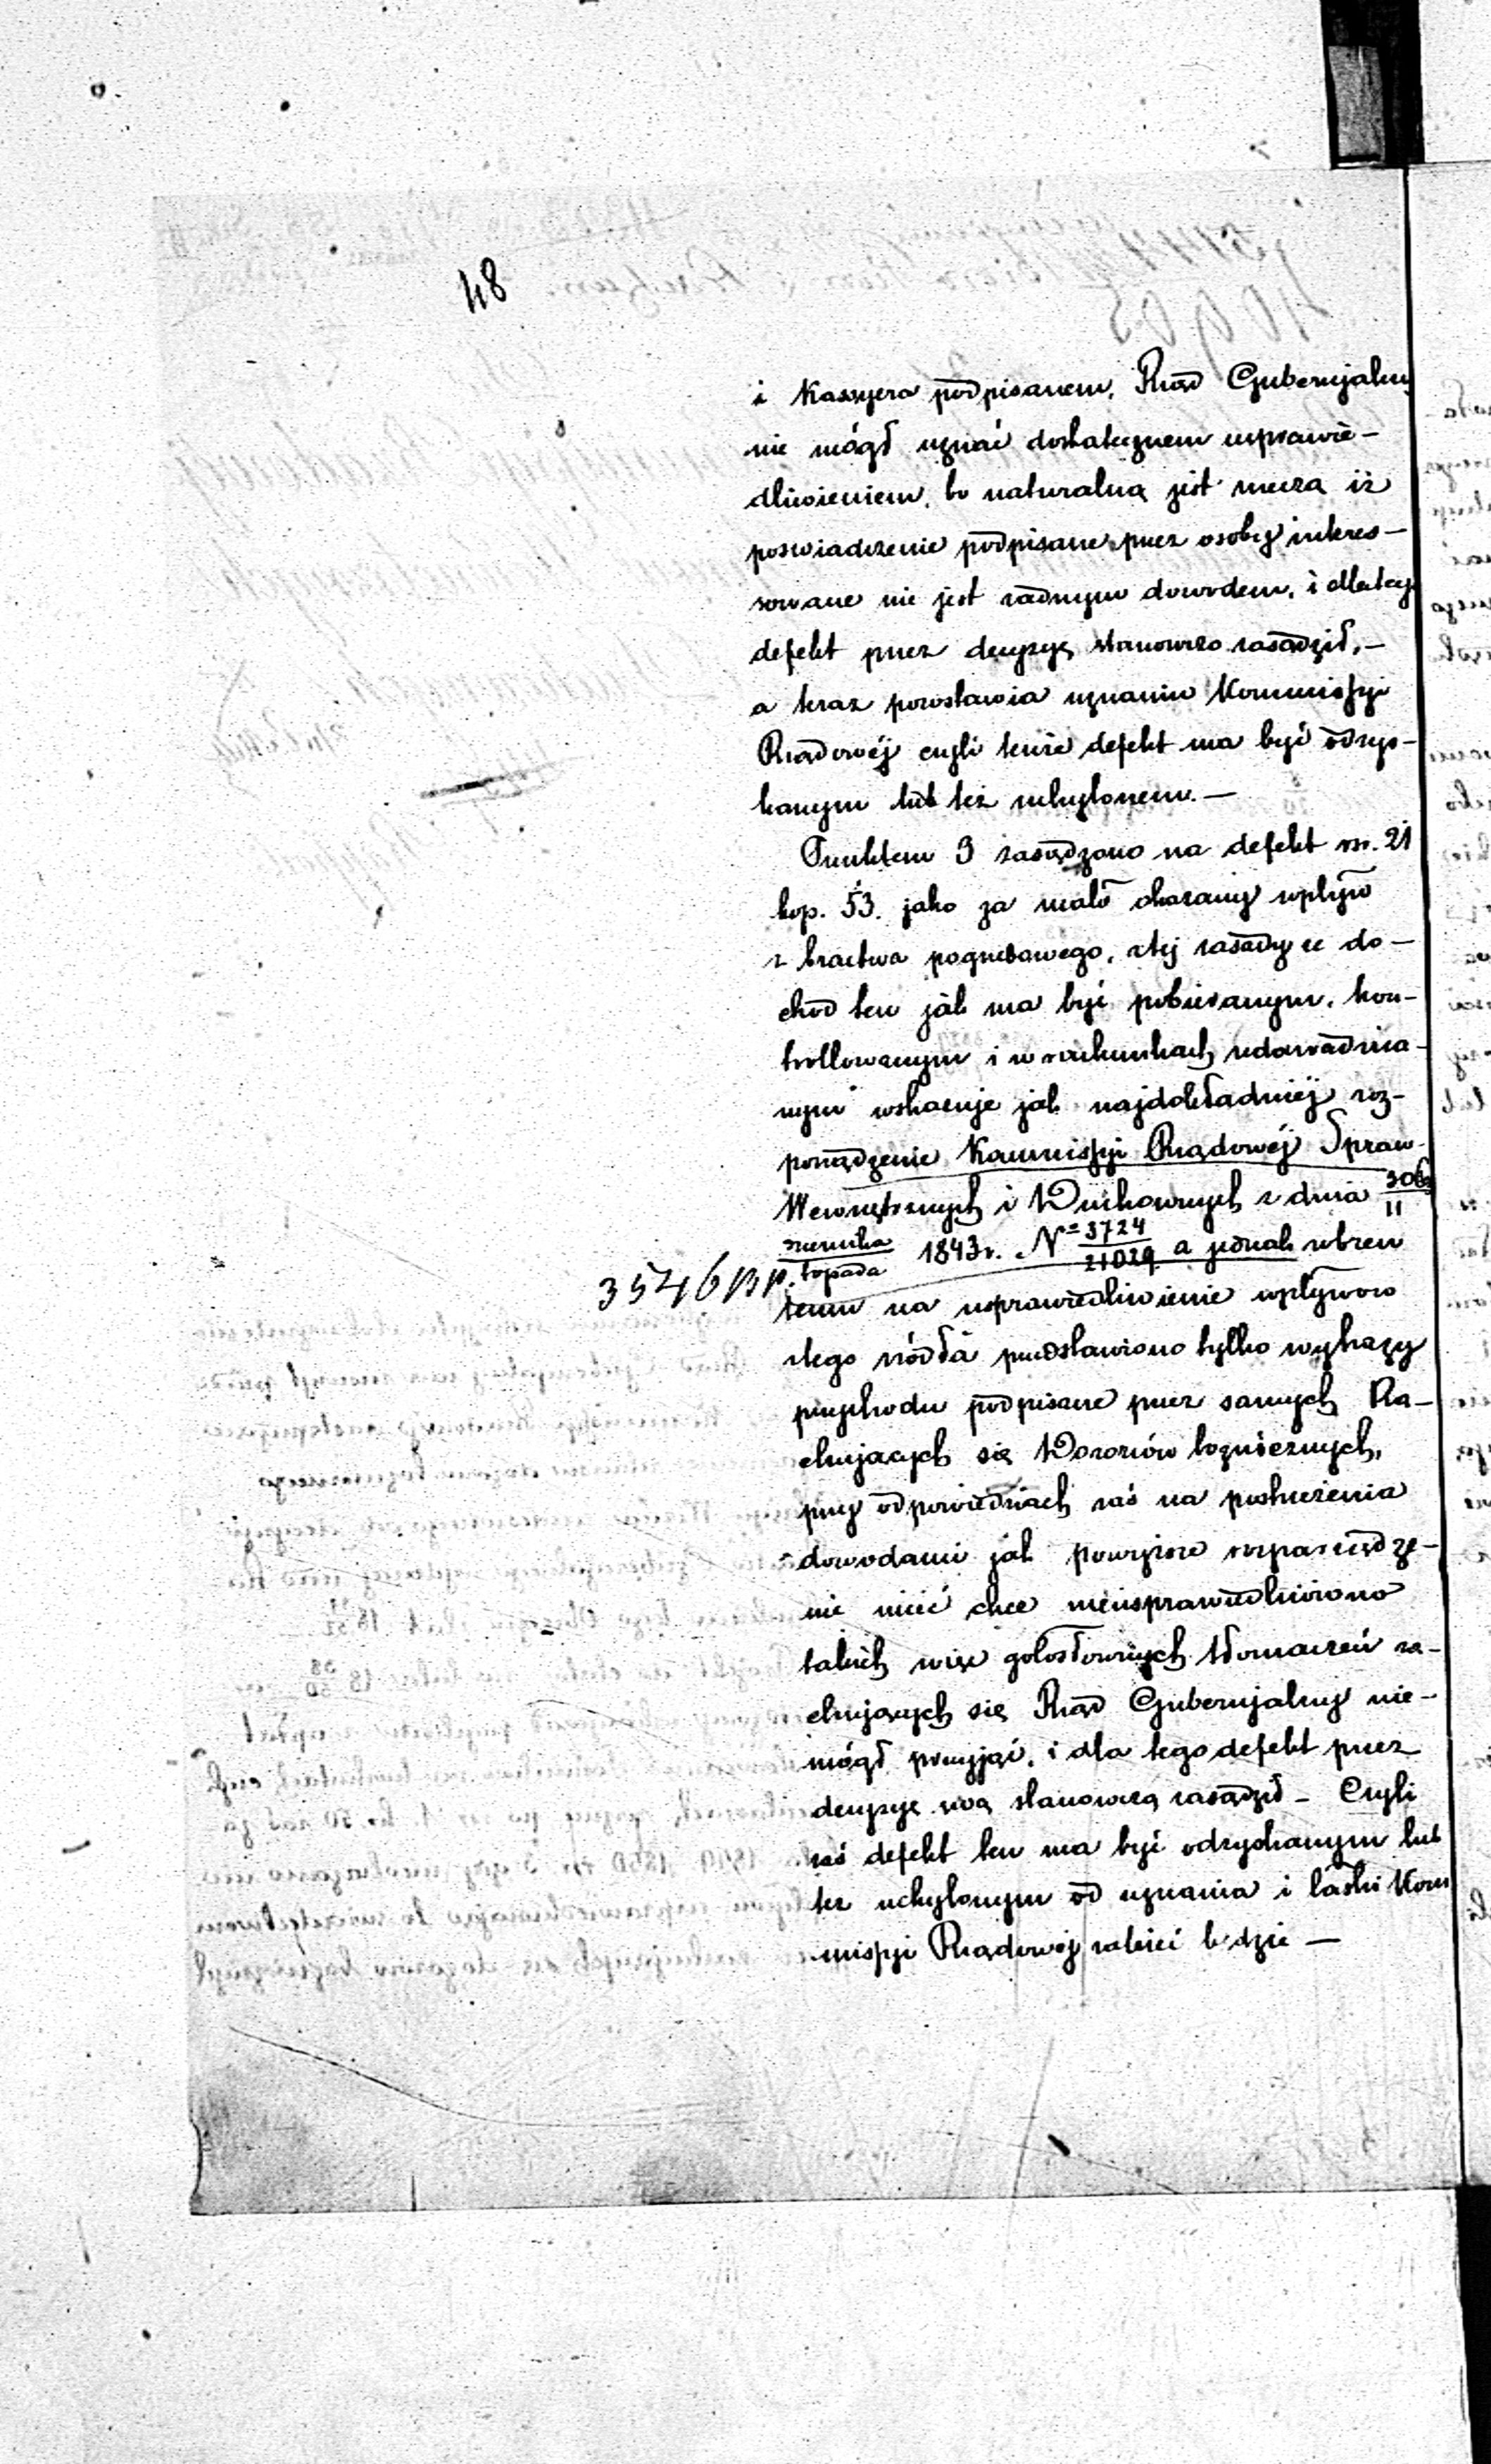 48
i Kassyera podpisanem, Rząd Gubernjalny
nie mógł uznać dostatecznem usprawie-
dliwieniem, bo naturalną jest rzeczą iż
poswiadczenie podpisane przez osoby intères-
sowane nie jest żadnym dowodem, i dlatego
defekt przez decyzyę stanowczo zasądził,-
a teraz pozostawia uznaniu Kommissyi
Rządowéj czyli tenże defekt ma być odzys-
kanym lub też uchylonem.-
Punktem 9 zasądzono na defekt rsr. 21
kop. 53. jako za mało okazany wpływ
z bractwa pogrzebowego, z tej zasady że do-
chód ten jak ma być pobieranym, kon-
trollowanym i w rachunkach udowadnia-
nym wskazuje jak najdokładniéj roz-
porządzenie Kommissyi Rządowéj Spraw
Wewnętrznych i Duchownych z dnia 30
11
topada 1843 r. N= 3724/21029 a jednak wbrew
3546
temu na usprawiedliwienie wpływów
z tego źródła przedstawiono tylko wykazy
przychodu podpisane przez samych Ra-
chujących się Dozorów bożniczych,
przy odpowiedziach zaś na postrzeżenia
dowodami jak powyższe rozporządze-
nie mieć chce nieusprawiedliwiono
takich więc gołosłownych tłomaczeń ra-
chujących się Rząd Gubernjalny nie-
mógł przyjąć, i dla tego defekt przez
decyzyę swą stanowczą zasądził - Czyli
zaś defekt ten ma być odzyskanym lub
też uchylonym od uznania i łaski Kom
missyi Rządowéj zależeć będzie -